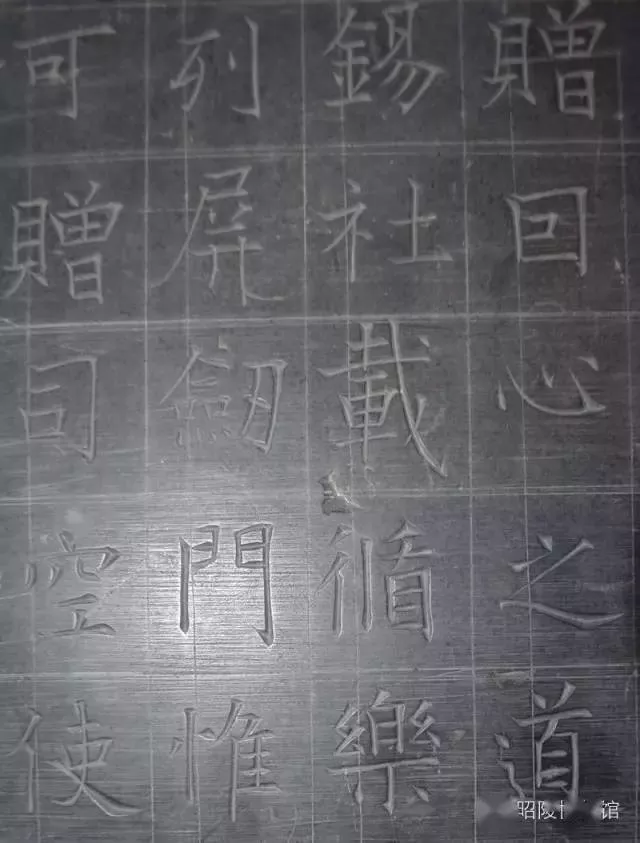 贈回心之道
錫社載循樂
列屏劒門惟
可贈司空使
昭陵 馆